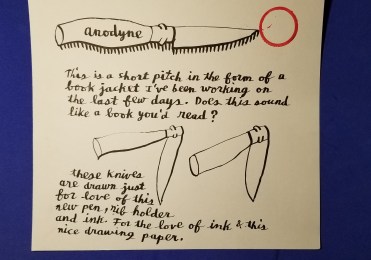 anodyne
This is a short pitch in the form of a
book jacket I've been working on
the last few days. Does this sound
like a book you'd read?
these knives
are drawn just
for love of this
new pen, nib holder
and ink. For the love of ink & this
nice drawing paper.